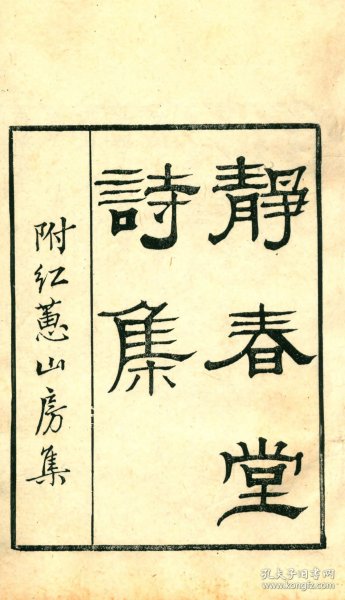 靜春堂
詩集
附红蕙山房集
孔夫子旧书网